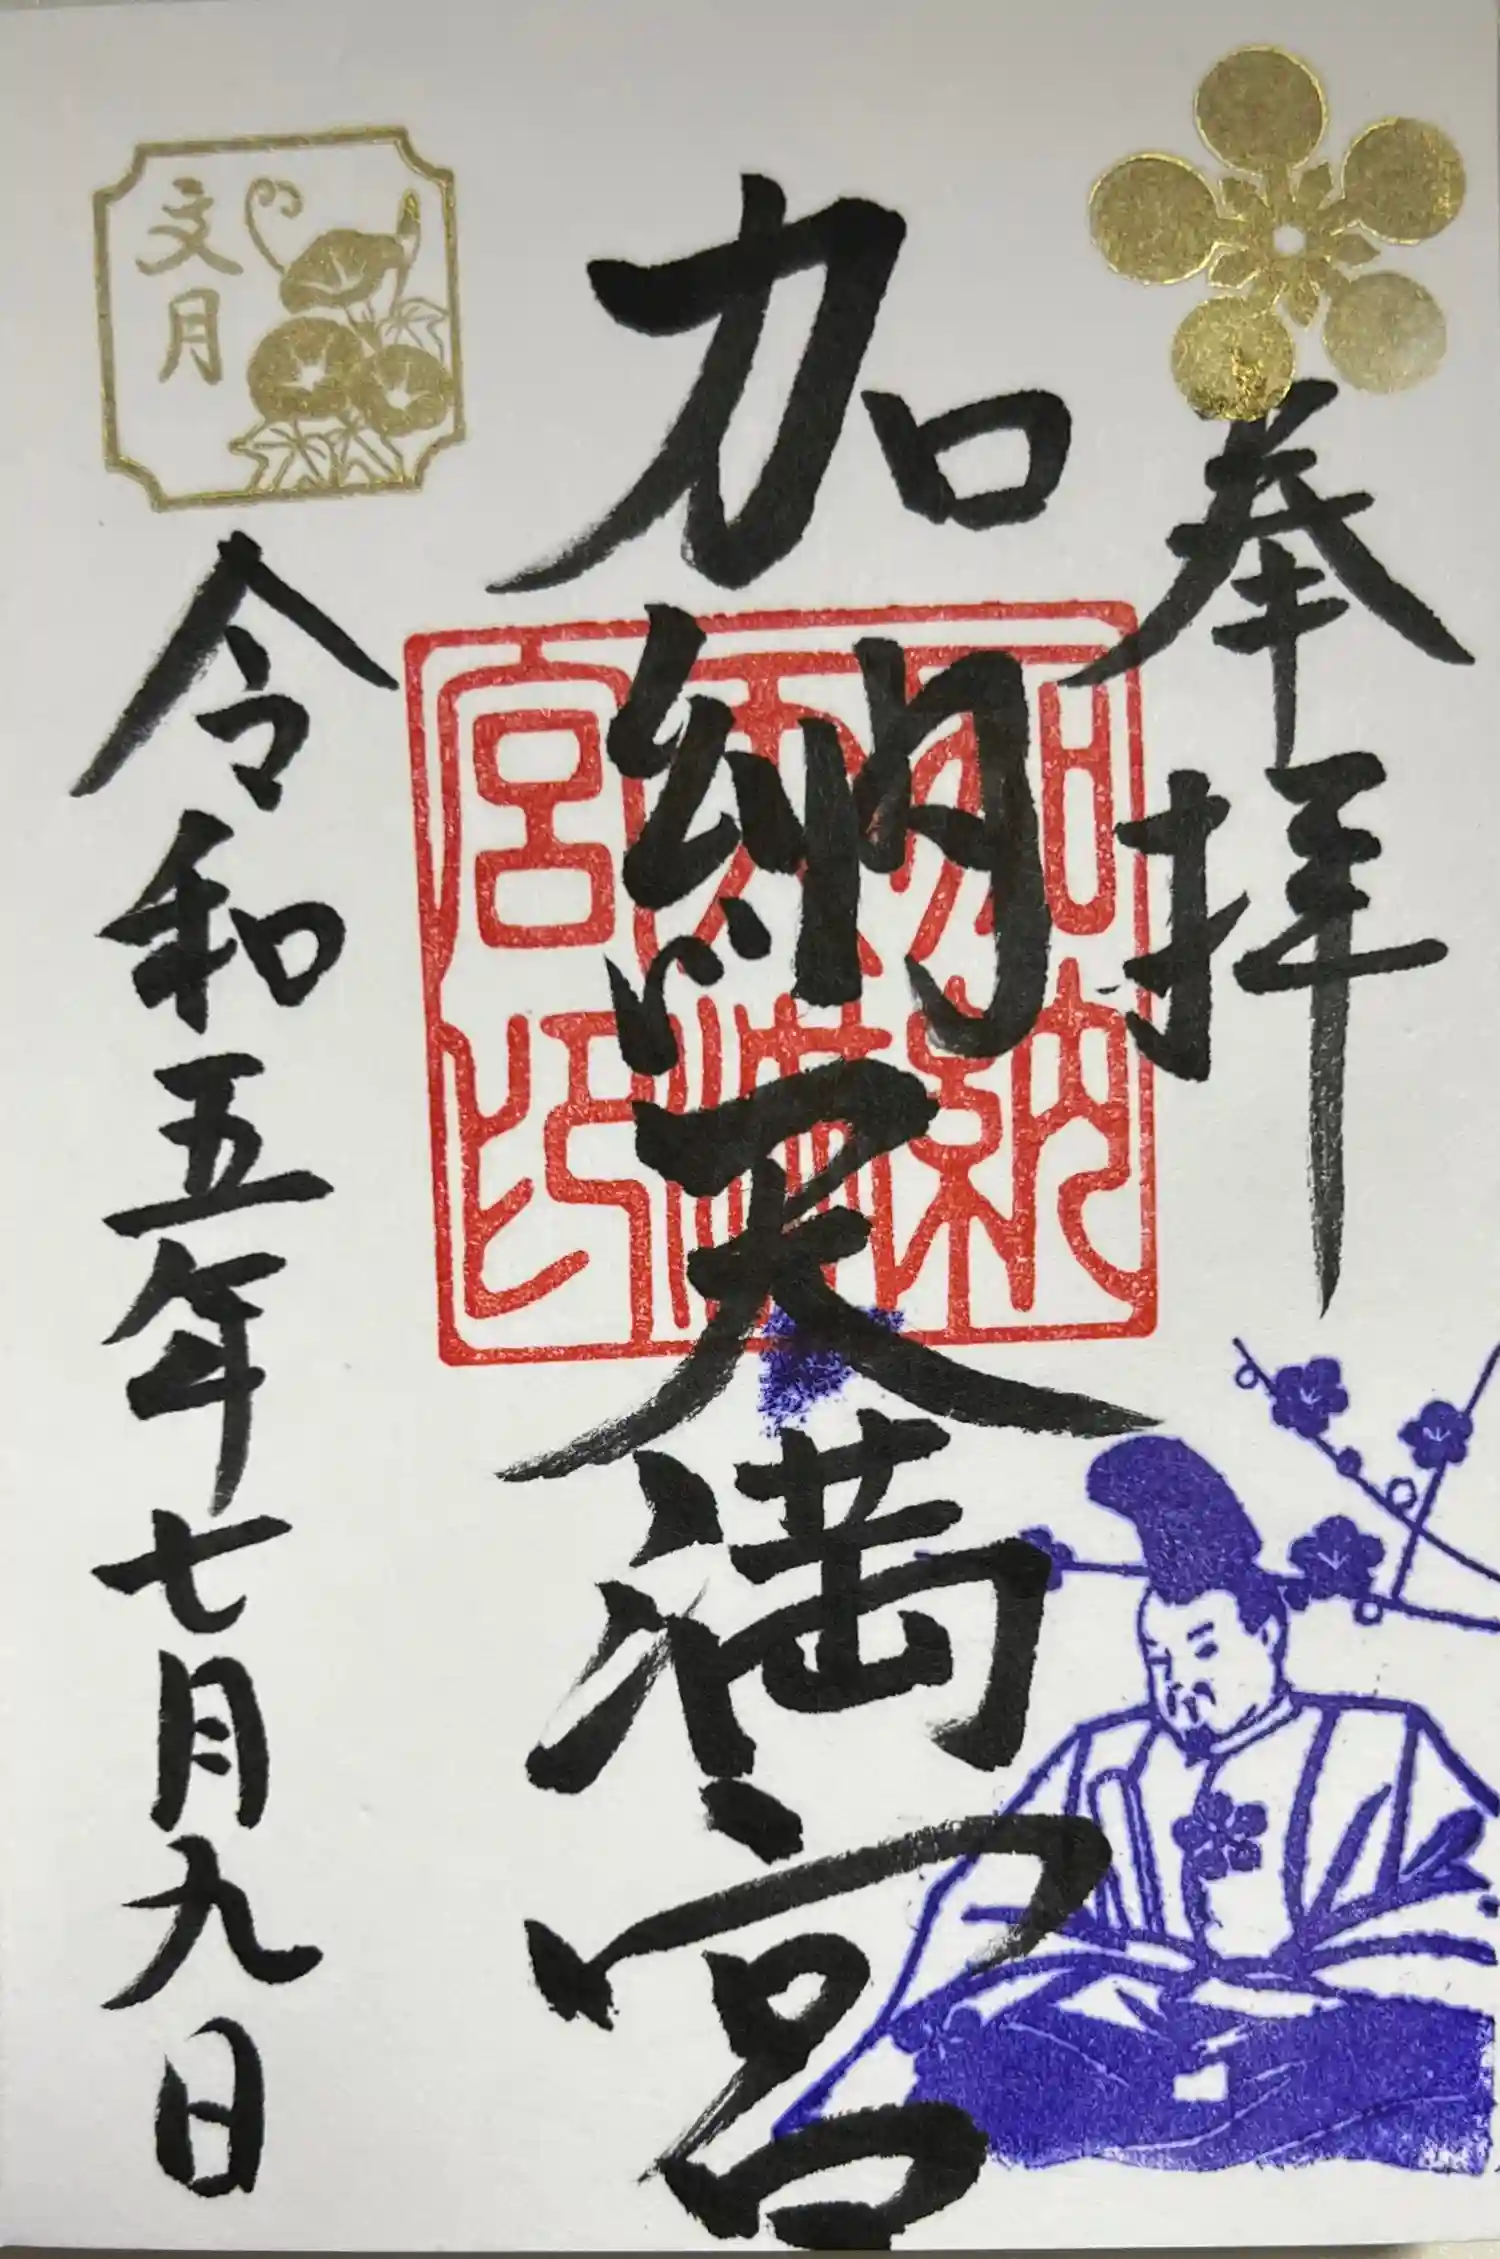 奉拝
加納天満宮
加納天満宮印
文月
令和五年七月九日